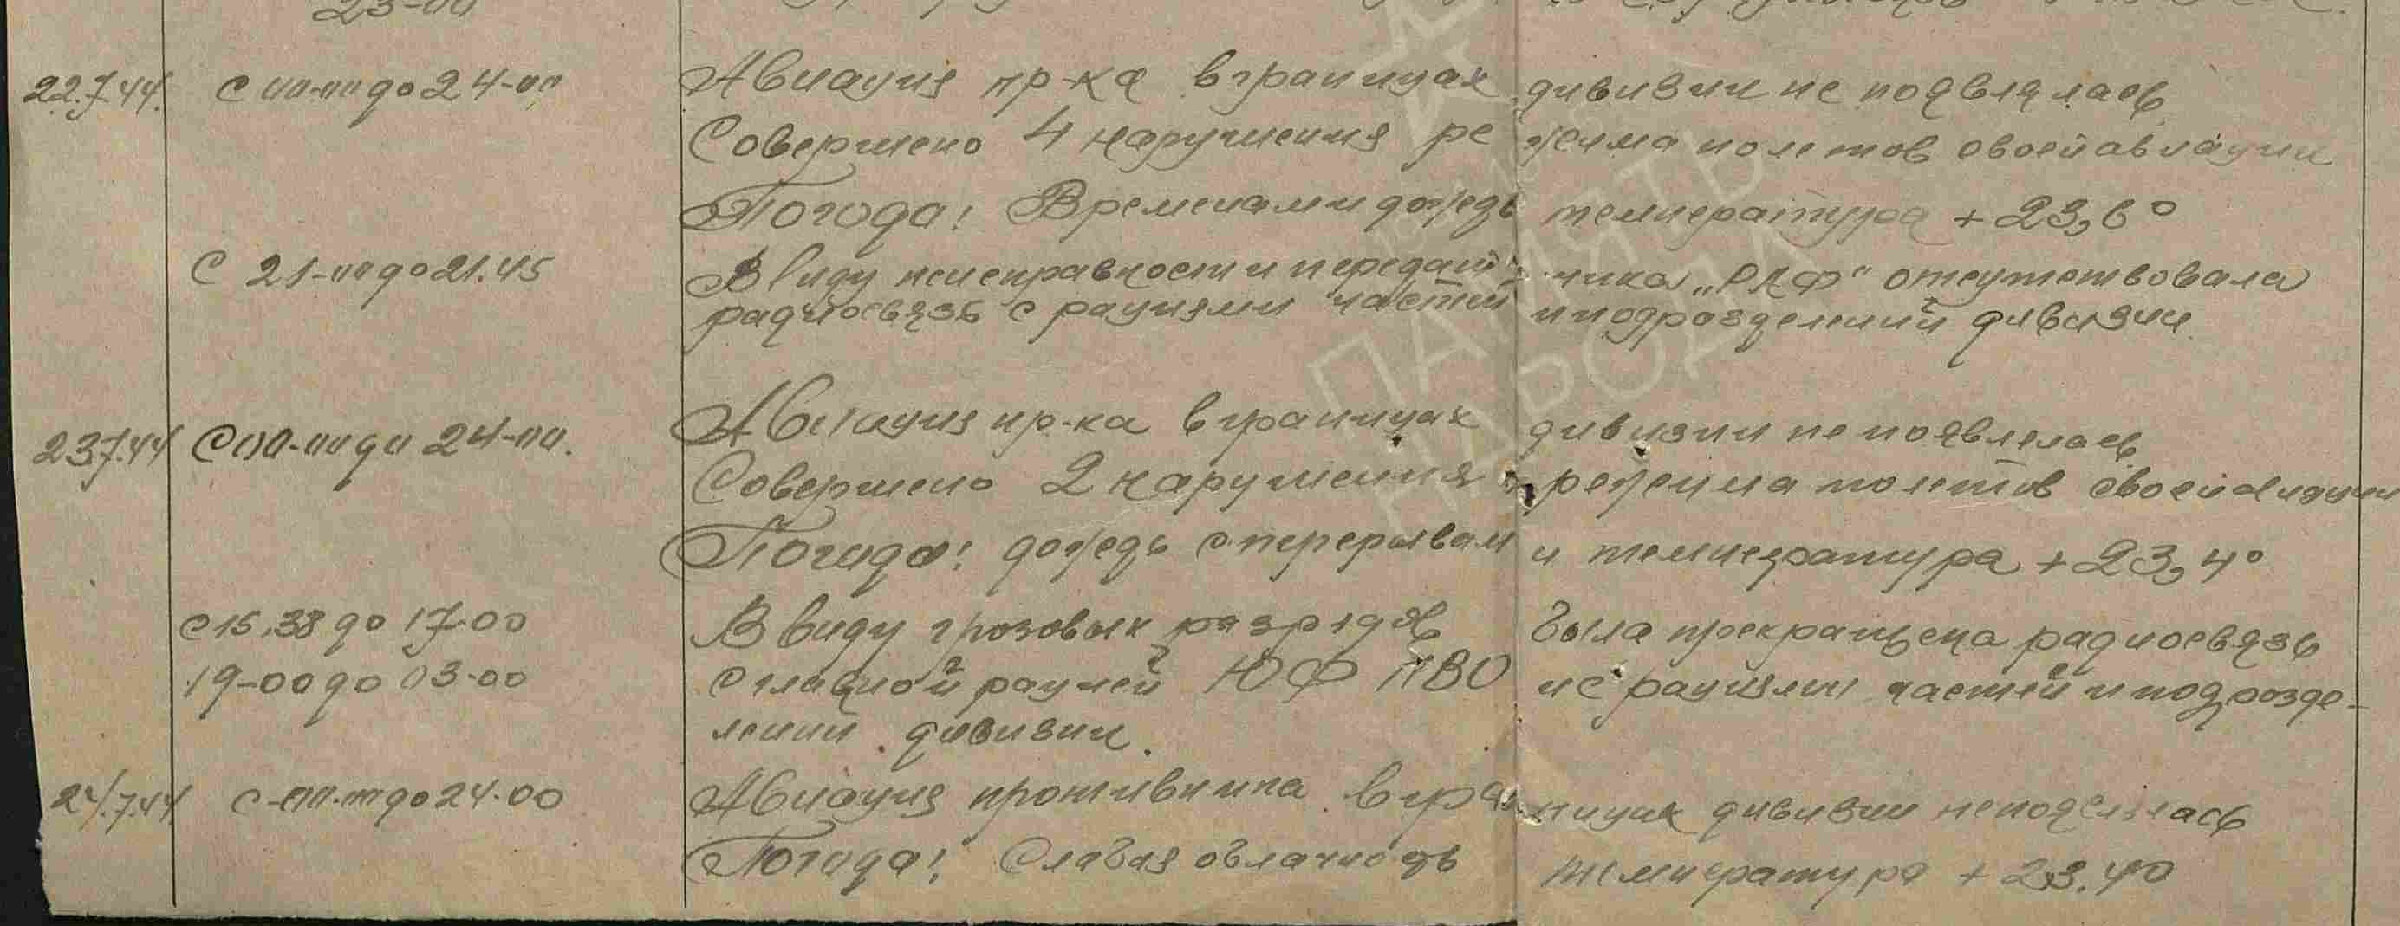 23-00
22.7.44. С 00-00 до 24-00 Авиация пр-ка в границах дивизии не появлялась
Совершено 4 нарушения режима полетов своей авиации
Погода: Временами дождь температура + 23,6°
С 21-00 до 21.45 Ввиду неисправности передатчика „РАФ" отсутствовала
радиосвязь с рациями частей и подразделений дивизии.
23.7.44 С 00-00 до 24-00. Авиация пр-ка в границах дивизии не появлелась
Совершено 2 нарушения режима полетов своей авиации
Погода: дождь с перерывами температура + 23,4°
С 15.38 до 17-00 Ввиду грозовых разрядов была прекращена радиосвязь
19-00 до 03-00 с главной рацией ЮФ ПВО и с рациями частей и подразде-
лений дивизии.
24.7.44 С-00-00 до 24-00 Авиация противника в границах дивизии не появлялась
Погода: Слабая облачность температура + 23.4°
ПАМЯТЬ
НАРОДА